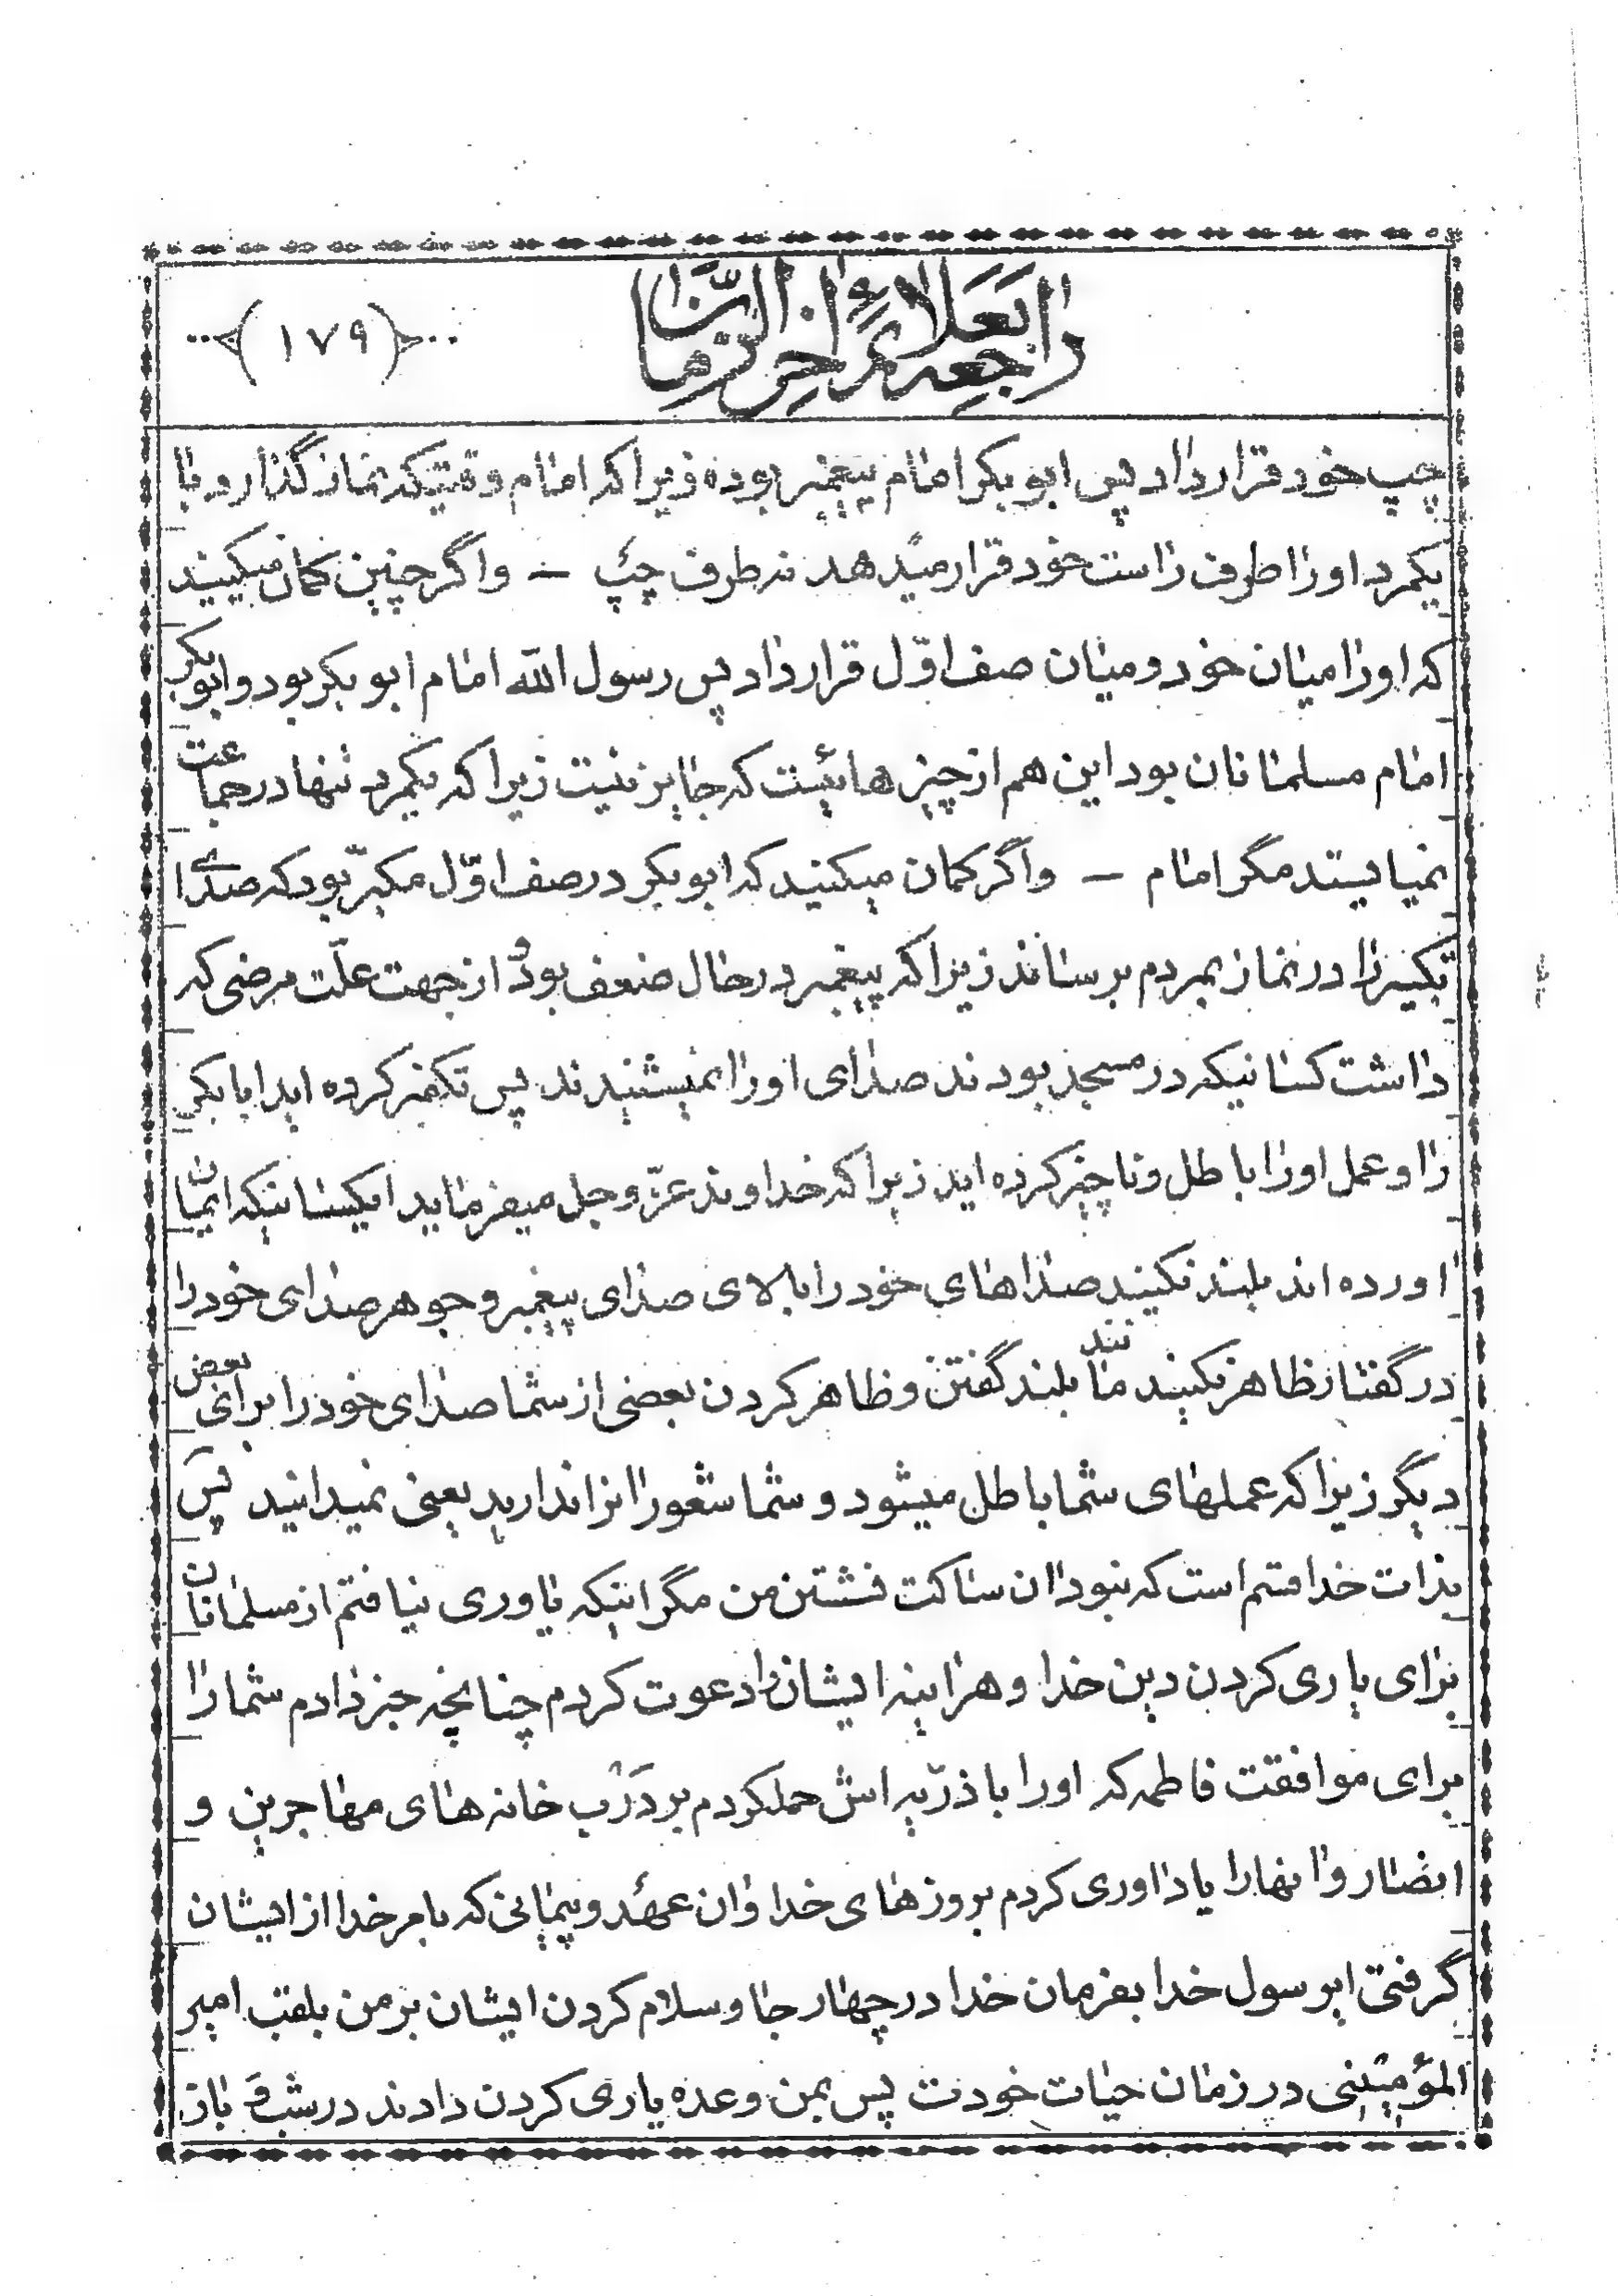 راجعه بعلائم اخر الزمان
(۱۷۹)
چپ خود قرار داد پس ابوبکر امام پیغمبر بوده زیرا که امام وقتیکه نماز گذارد با
یکمرد او را طرف راست خود قرار میدهد نه طرف چپ — و اگر چنین گمان میکنید
که او را میان خود و میان صف اوّل قرار داد پس رسول الله امام ابوبکر بود و ابوبکر
امام مسلمانان بود این هم از چیزهائیست که جایز نیست زیرا که یکمرد تنها در جماعت
نمیایستد مگر امام — و اگر گمان میکنید که ابوبکر در صف اوّل مکبّر بود که صدای
تکبیر را در نماز بمردم برساند زیرا که پیغمبر در حال ضعف بود از جهت علّت مرضی که
داشت کسانیکه در مسجد بودند صدای او را نمیشنیدند پس تکفیر کرده اید ابابکر
را و عمل او را باطل و ناچیز کرده اید زیرا که خداوند عزّوجل میفرماید ایکسانیکه ایمان
اورده اند بلند نکنید صداهای خود را بالای صدای پیغمبر و جوهر صدای خود را
در گفتار ظاهر نکنید مانند بلند گفتن و ظاهر کردن بعضی از شما صدای خود را برای بعض
دیگر زیرا که عملهای شما باطل میشود و شما شعور انرا ندارید یعنی نمیدانید پس
بذات خدا قسم است که نبود ان ساکت نشستن من مگر اینکه یاوری نیافتم از مسلمانان
برای یاری کردن دین خدا و هراینه ایشانرا دعوت کردم چنانچه خبر دادم شما را
برای موافقت فاطمه که او را با ذرّیه اش حملکردم بر دَرْب خانه های مهاجرین و
انصار و انها را یاداوری کردم بروزهای خدا و ان عهد و پیمانی که بامر خدا از ایشان
گرفتی ایرسول خدا بفرمان خدا در چهار جا و سلام کردن ایشان بر من بلقب امیر
المؤمنینی در زمان حیات خودت پس بمن وعده یاری کردن دادند در شب و باز